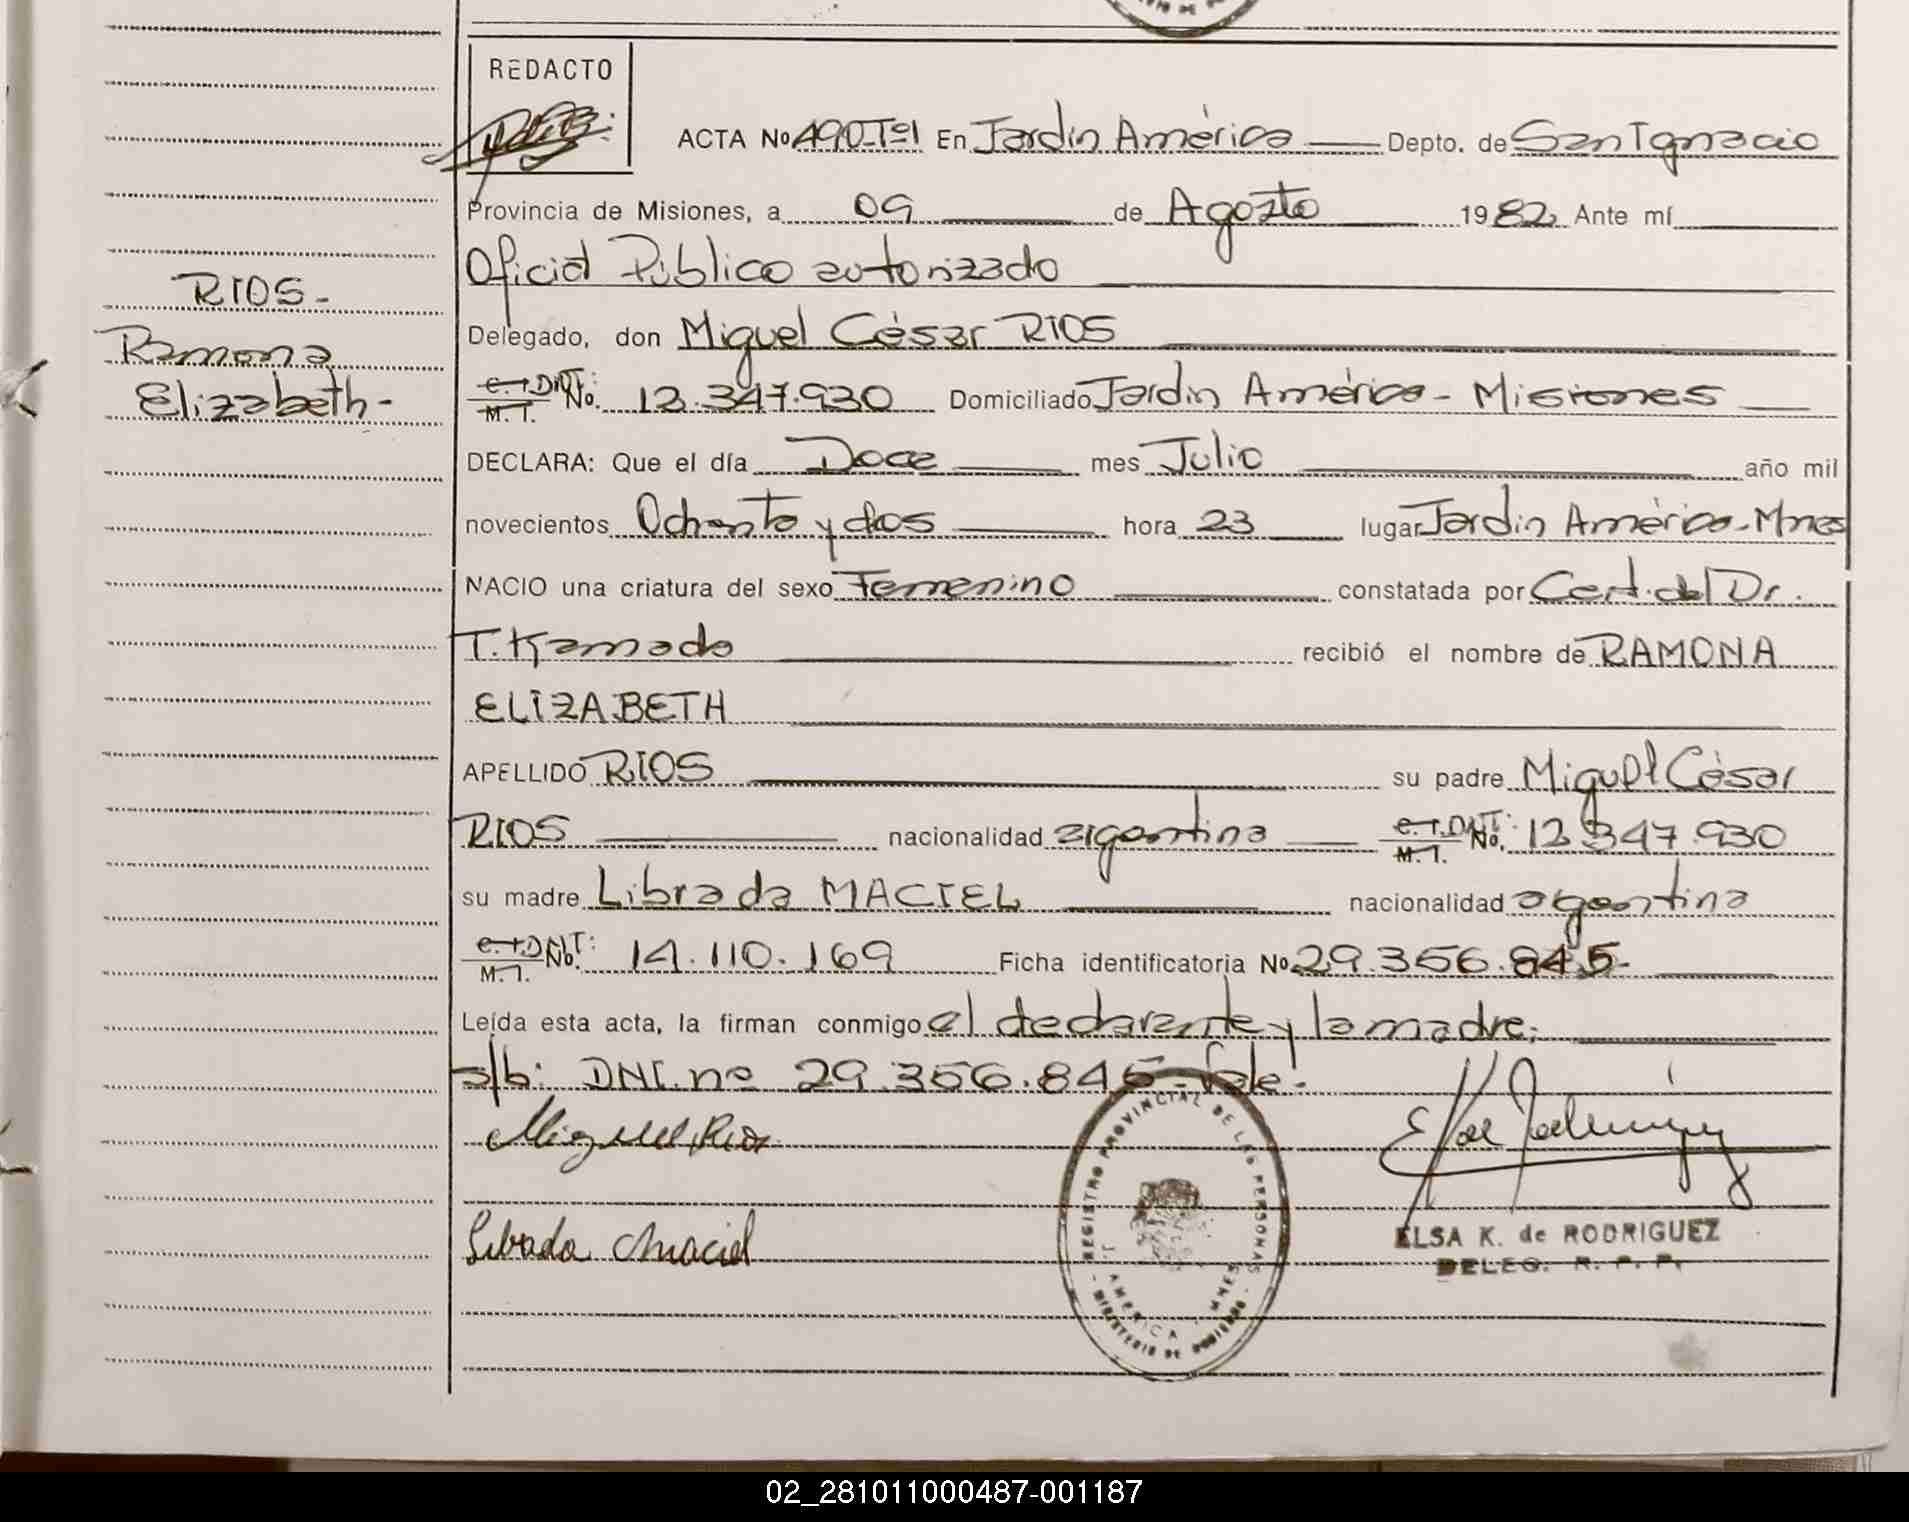 REDACTO
ACTA No 490-Tº1 En Jardín América Depto. de San Ignacio
Provincia de Misiones, a 09 de Agosto 1982 Ante mí
Oficial Público autorizado
RIOS-
Delegado, don Miguel César RIOS
Ramona
C. I. DNI: M. I. No. 12.347.930 Domiciliado Jardín América - Misiones
Elizabeth-
DECLARA: Que el día Doce mes Julio año mil
novecientos Ochenta y dos hora 23 lugar Jardín América-Mnes
NACIO una criatura del sexo Femenino constatada por Cert. del Dr.
T. Kamada recibió el nombre de RAMONA
ELIZABETH
APELLIDO RIOS su padre Miguel César
RIOS nacionalidad argentina C. I. DNI: M. I. No. 12.347.930
su madre Librada MACIEL nacionalidad argentina
C. I. DNI: M. I. No. 14.110.169 Ficha identificatoria No 29.356.845-
Leída esta acta, la firman conmigo el declarante y la madre;
s/b: DNI. nº 29.356.845-Vale!
Miguel Rios
Librada Maciel
REGISTRO PROVINCIAL DE LAS PERSONAS
J. AMERICA - MNES
- MINISTERIO DE GOBIERNO -
ELSA K. de RODRIGUEZ
DELEG. R. P. P.
02_281011000487-001187